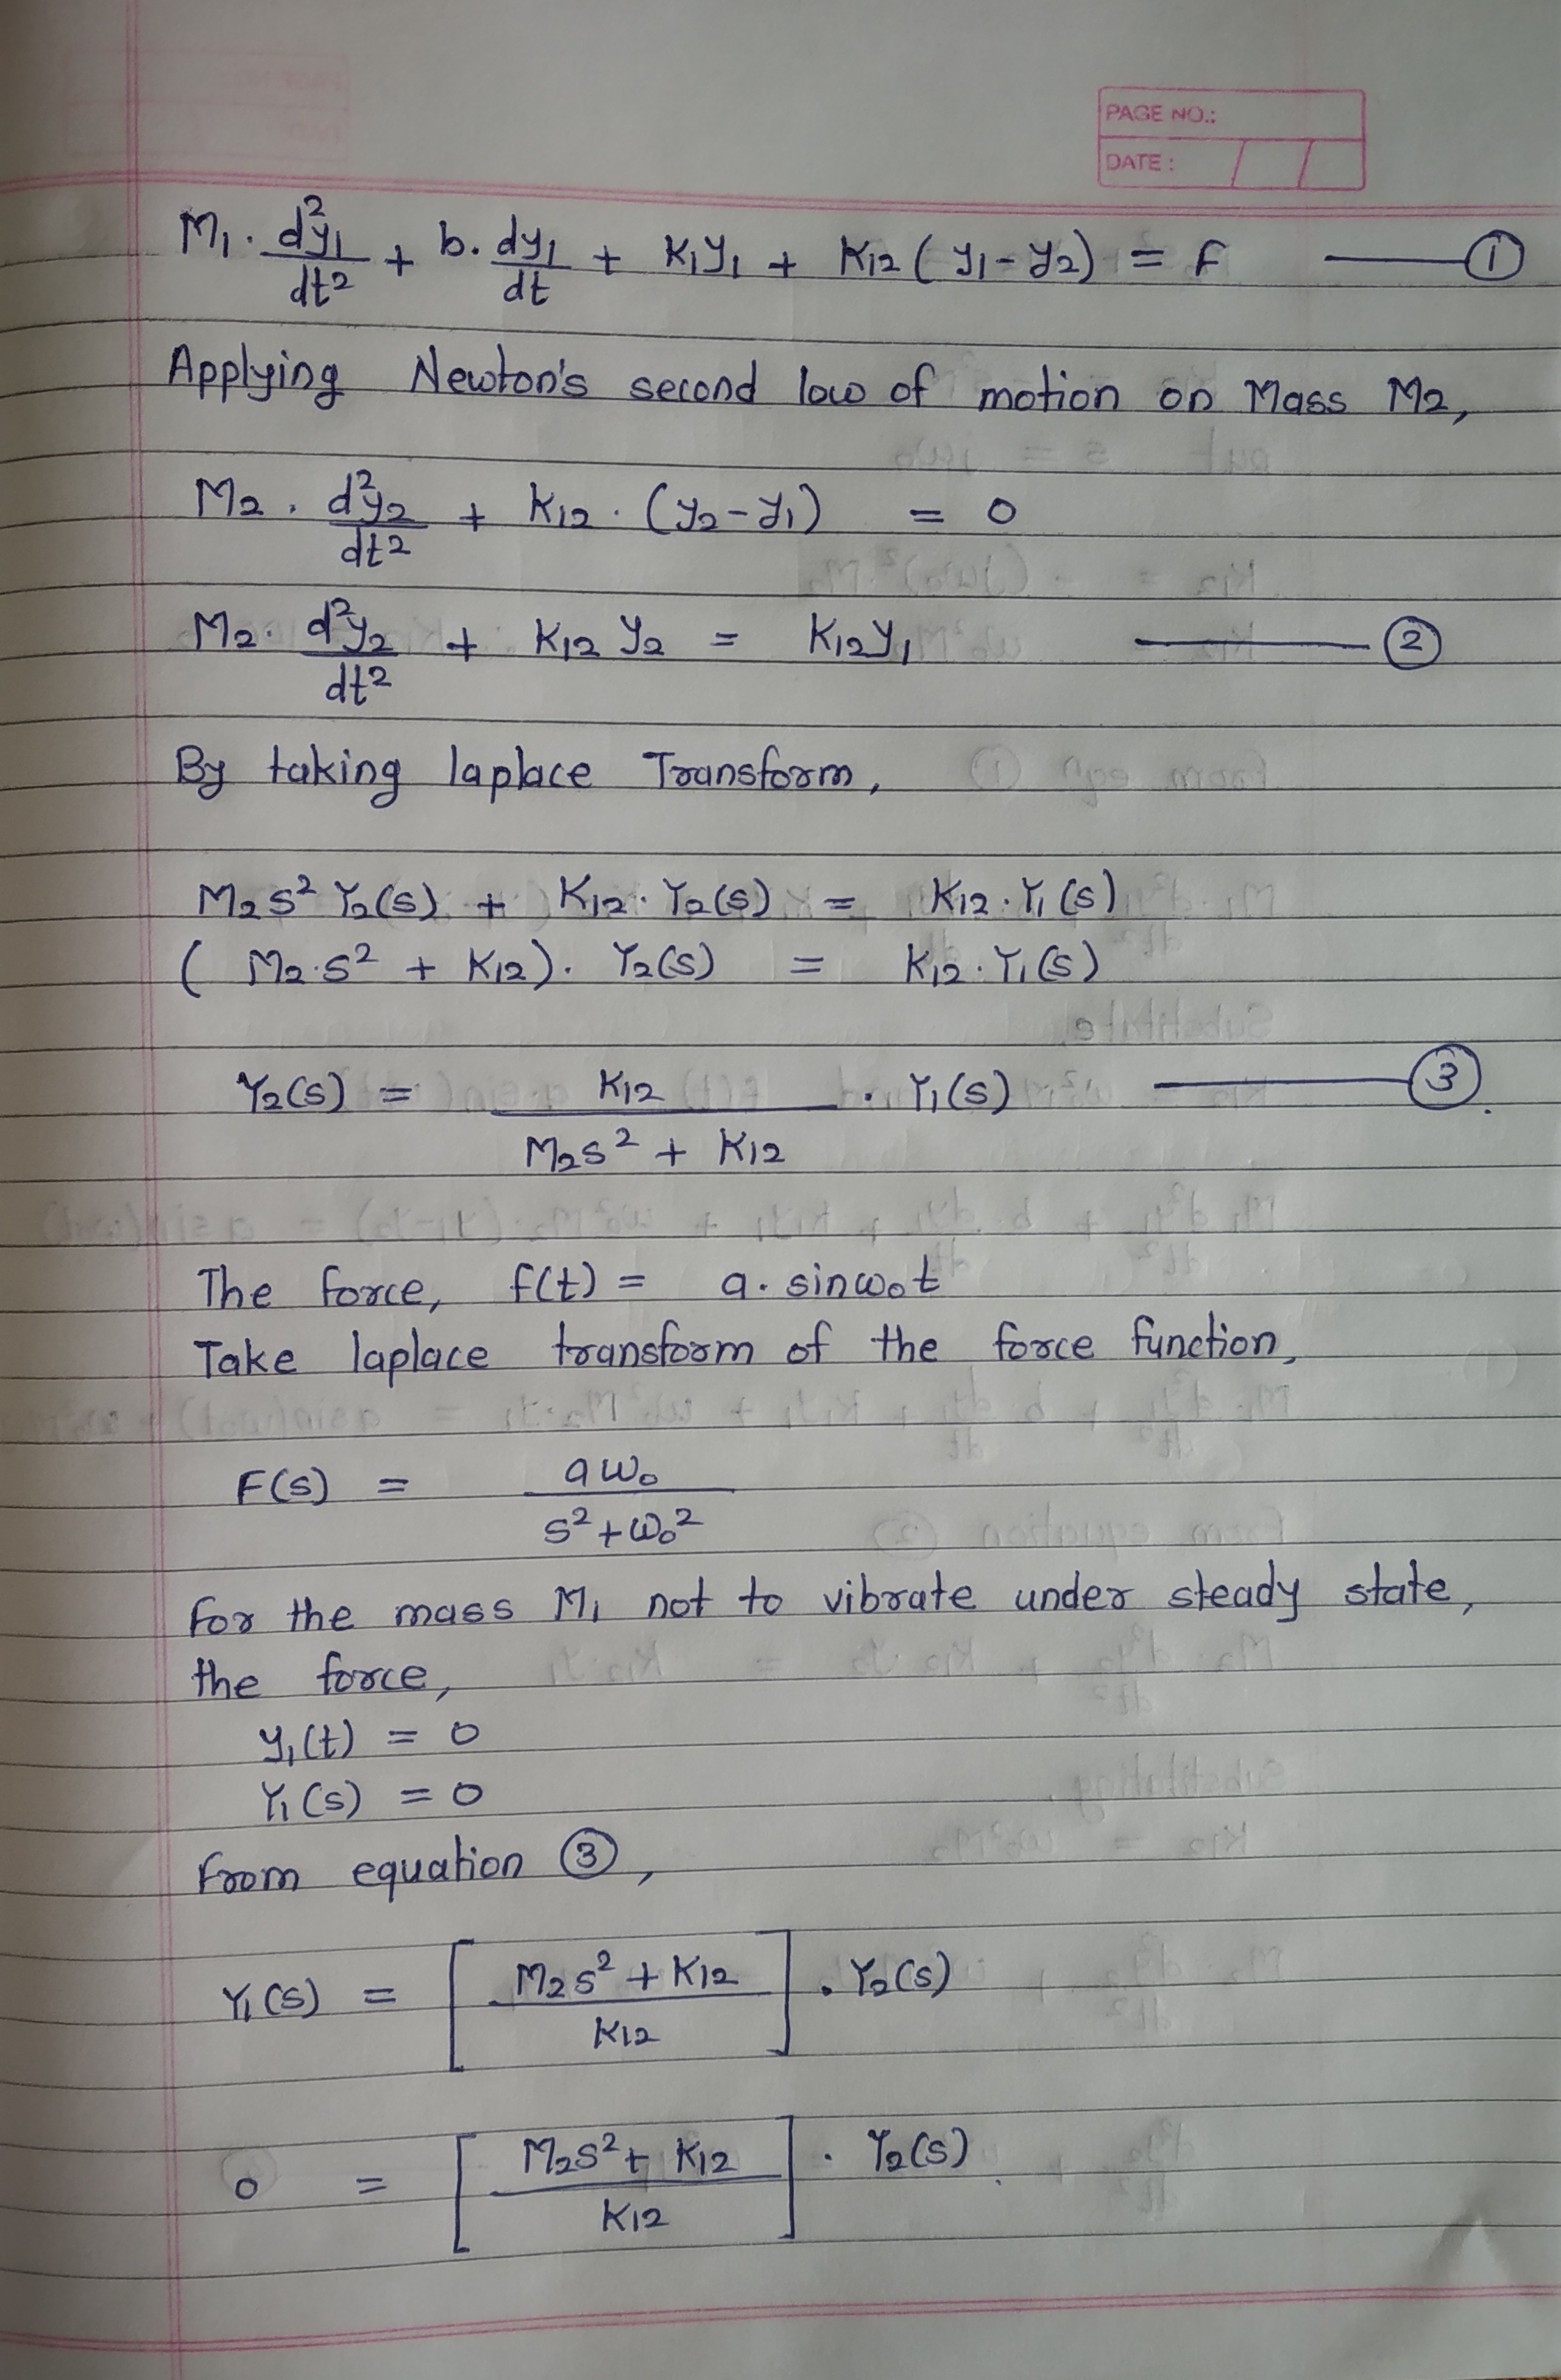 PAGE NO.:
DATE :
M₁ · d²y₁/dt² + b. dy₁/dt + K₁y₁ + K₁₂ (y₁-y₂) = F —— ①
Applying Newton's second low of motion on Mass M₂,
M₂ . d²y₂/dt² + K₁₂ . (y₂-y₁) = 0
M₂. d²y₂/dt² + K₁₂ y₂ = K₁₂y₁ —— ②
By taking laplace Transform,
M₂s² Y₂(s) + K₁₂. Y₂(s) = K₁₂. Y₁(s)
( M₂.s² + K₁₂). Y₂(s) = K₁₂. Y₁(s)
Y₂(s) = K₁₂ / M₂s² + K₁₂ . Y₁(s) —— ③
The force, f(t) = a. sinω₀t
Take laplace transform of the force function,
F(s) = aω₀ / s²+ω₀²
For the mass M₁ not to vibrate under steady state,
the force,
y₁(t) = 0
Y₁(s) = 0
From equation ③,
Y₁(s) = [ M₂s² + K₁₂ / K₁₂ ] . Y₂(s)
0 = [ M₂s² + K₁₂ / K₁₂ ] . Y₂(s)